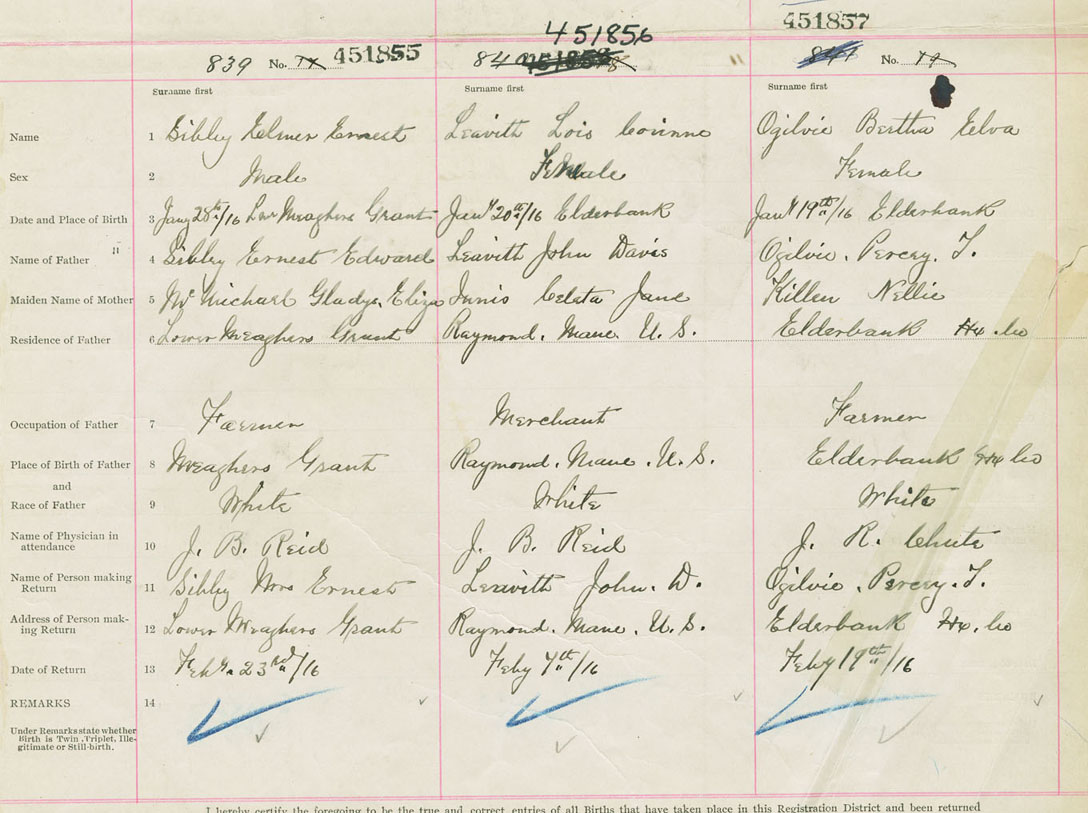 451857
451856
839 No. 451855
840
841 No. 19
Surname first Surname first Surname first
Name 1 Sibley Elmer Ernest Leavitt Lois Corinne Ogilvie Bertha Elva
Sex 2 Male Female Female
Date and Place of Birth 3 Jany 28th/16 Lwr Meaghers Grant Jany 20th/16 Elderbank Jany 19th/16 Elderbank
Name of Father 4 Sibley Ernest Edward Leavitt John Davis Ogilvie. Percey. T.
Maiden Name of Mother 5 Mc Michael Gladys Eliza Innis Celeta Jane Killen Nellie
Residence of Father 6 Lower Meaghers Grant Raymond. Mane. U. S. Elderbank Hx. Co
Occupation of Father 7 Farmer Merchant Farmer
Place of Birth of Father 8 Meaghers Grant Raymond. Mane. U. S. Elderbank Hx Co
and
Race of Father 9 White White White
Name of Physician in
attendance 10 J. B. Reid J. B. Reid J. R. Chute
Name of Person making
Return 11 Sibley Mrs Ernest Leavitt John. D. Ogilvie. Percey. T.
Address of Person mak-
ing Return 12 Lower Meaghers Grant Raymond. Mane. U. S. Elderbank Hx. Co
Date of Return 13 Feby. 23rd/16 Feby 7th/16 Feby 19th/16
REMARKS 14
Under Remarks state whether
Birth is Twin, Triplet, Ille-
gitimate or Still-birth.
I hereby certify the foregoing to be the true and correct entries of all Births that have taken place in this Registration District and been returned